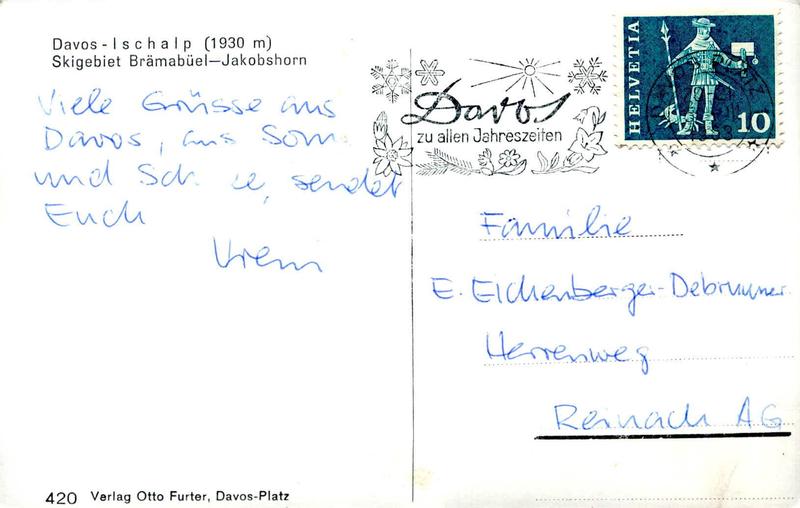 Davos-Ischalp (1930 m)
Skigebiet Brämabüel—Jakobshorn
Viele Grüsse aus
Davos, aus Sonn
und Sch, sendet
Euch
Davos
zu allen Jahreszeiten
HELVETIA
10
Familie
E. Eichenberger-Debrunner
Herrenweg
Reinach AG
420 Verlag Otto Furter, Davos-Platz